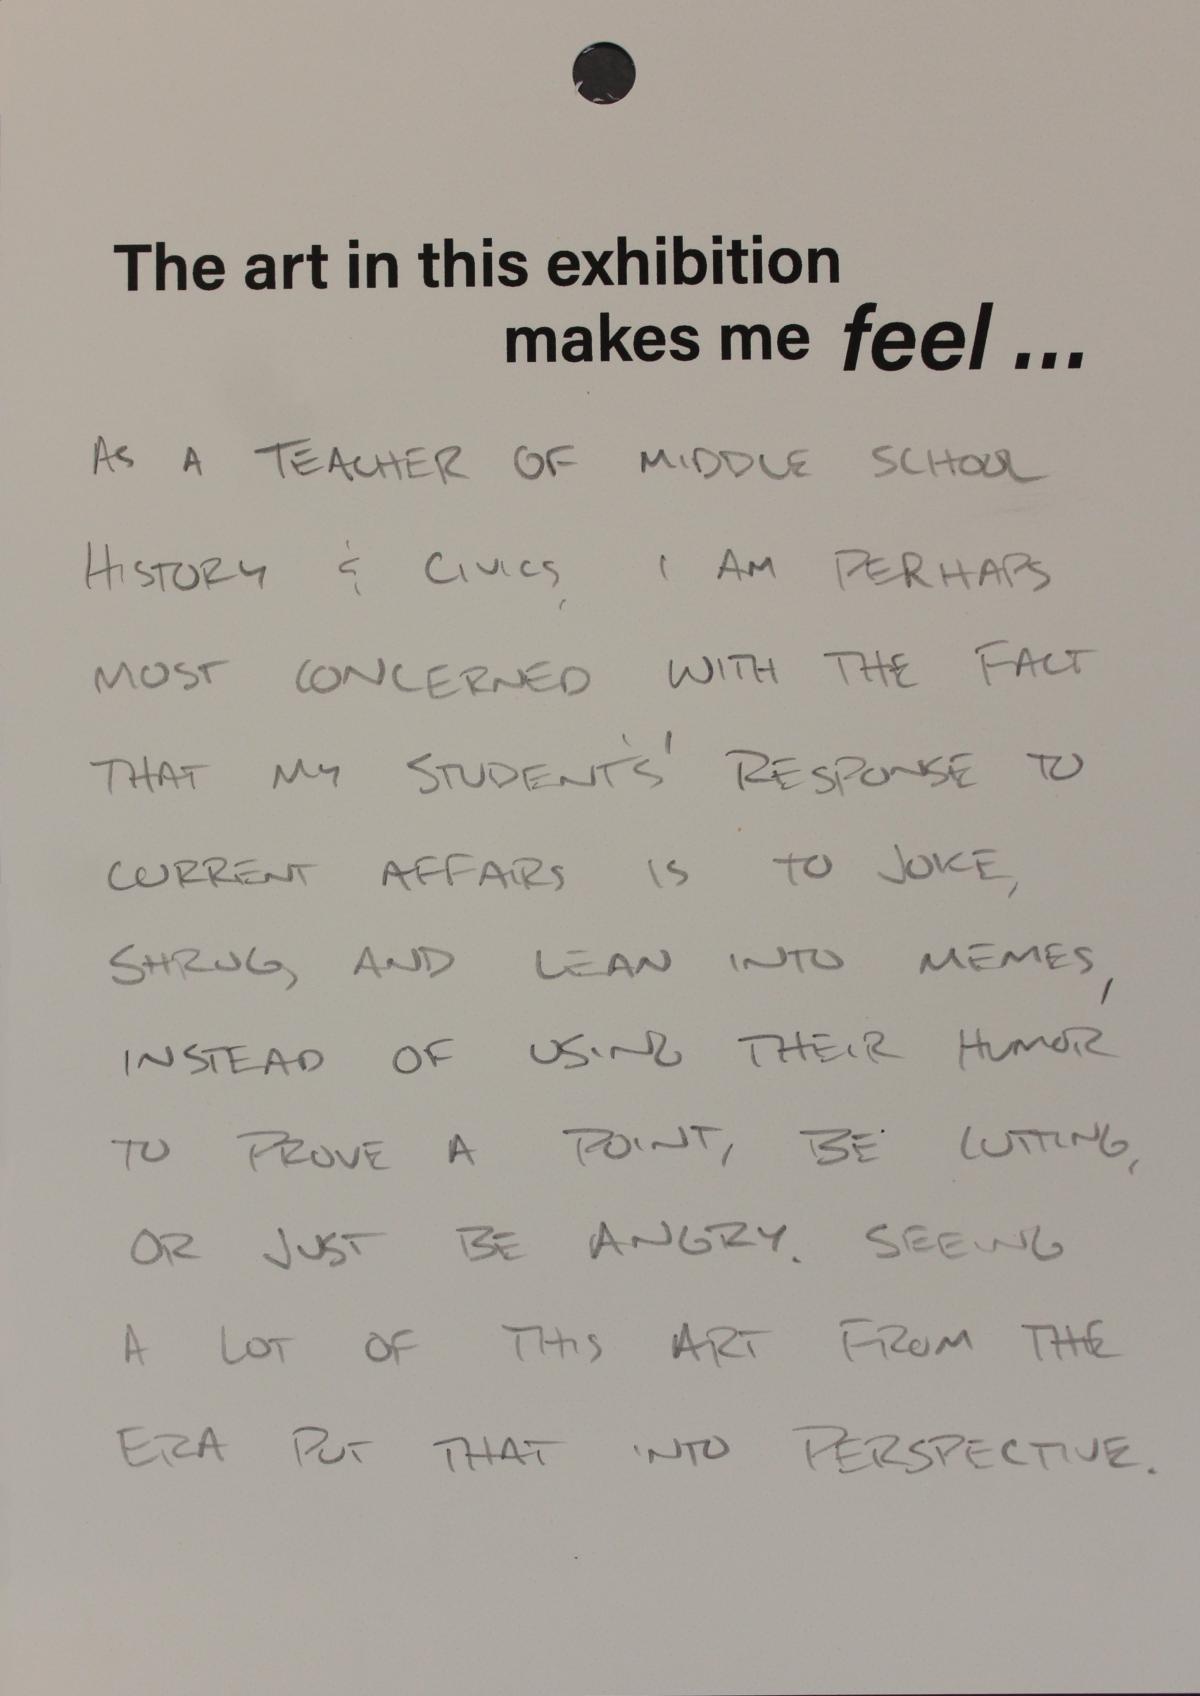 The art in this exhibition
makes me feel ...
AS A TEACHER OF MIDDLE SCHOOL
HISTORY & CIVICS, I AM PERHAPS
MOST CONCERNED WITH THE FACT
THAT MY STUDENT'S' RESPONSE TO
CURRENT AFFAIRS IS TO JOKE,
SHRUG, AND LEAN INTO MEMES,
INSTEAD OF USING THEIR HUMOR
TO PROVE A POINT, BE CUTTING,
OR JUST BE ANGRY. SEEING
A LOT OF THIS ART FROM THE
ERA PUT THAT INTO PERSPECTIVE.